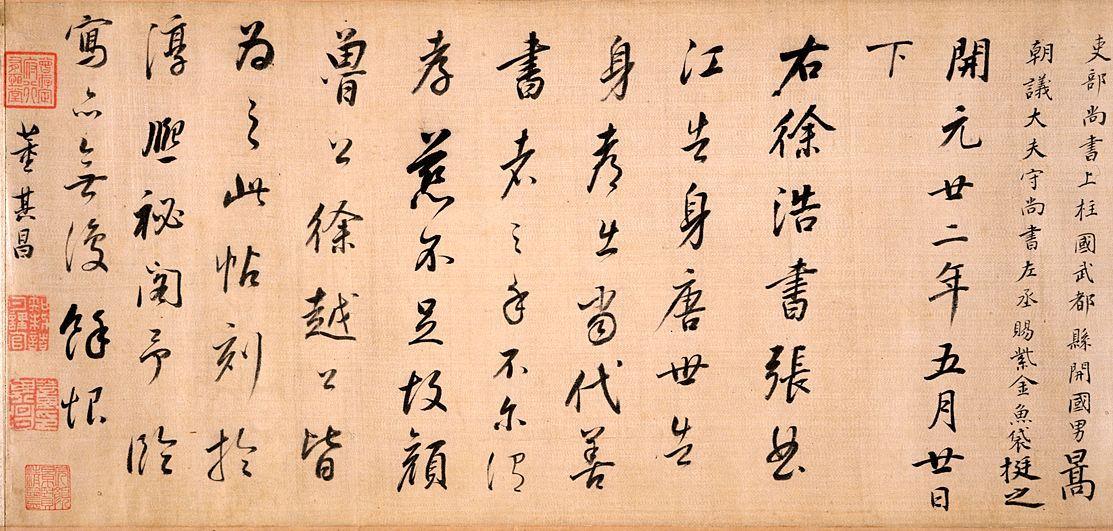 吏部尚書上柱國武都縣開國男暠
朝議大夫守尚書左丞賜紫金魚袋挺之
開元廿二年五月廿日
下
右徐浩書張曲
江告身唐世告
身出當代善
書者之手不尔謂
孝慈不足故顏
魯公徐越公皆
為之此帖刻於
淳熙祕閣予臨
寫亦無復餘恨
董其昌